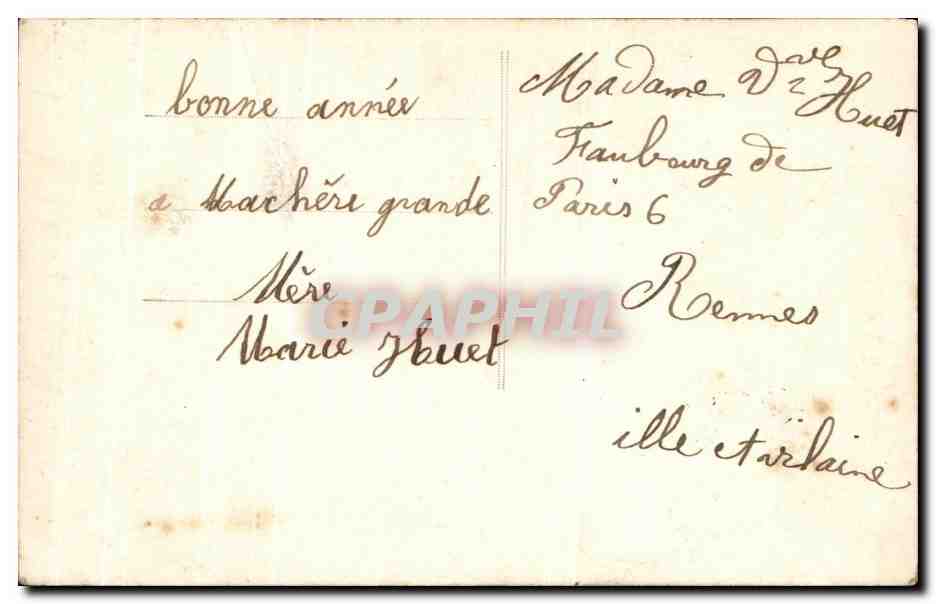 bonne année
a Machère grande
Mère
Marie Huet
Madame Vve
Huet
Faubourg de
Paris 6
Rennes
ille et vilaine
CPAPHIL